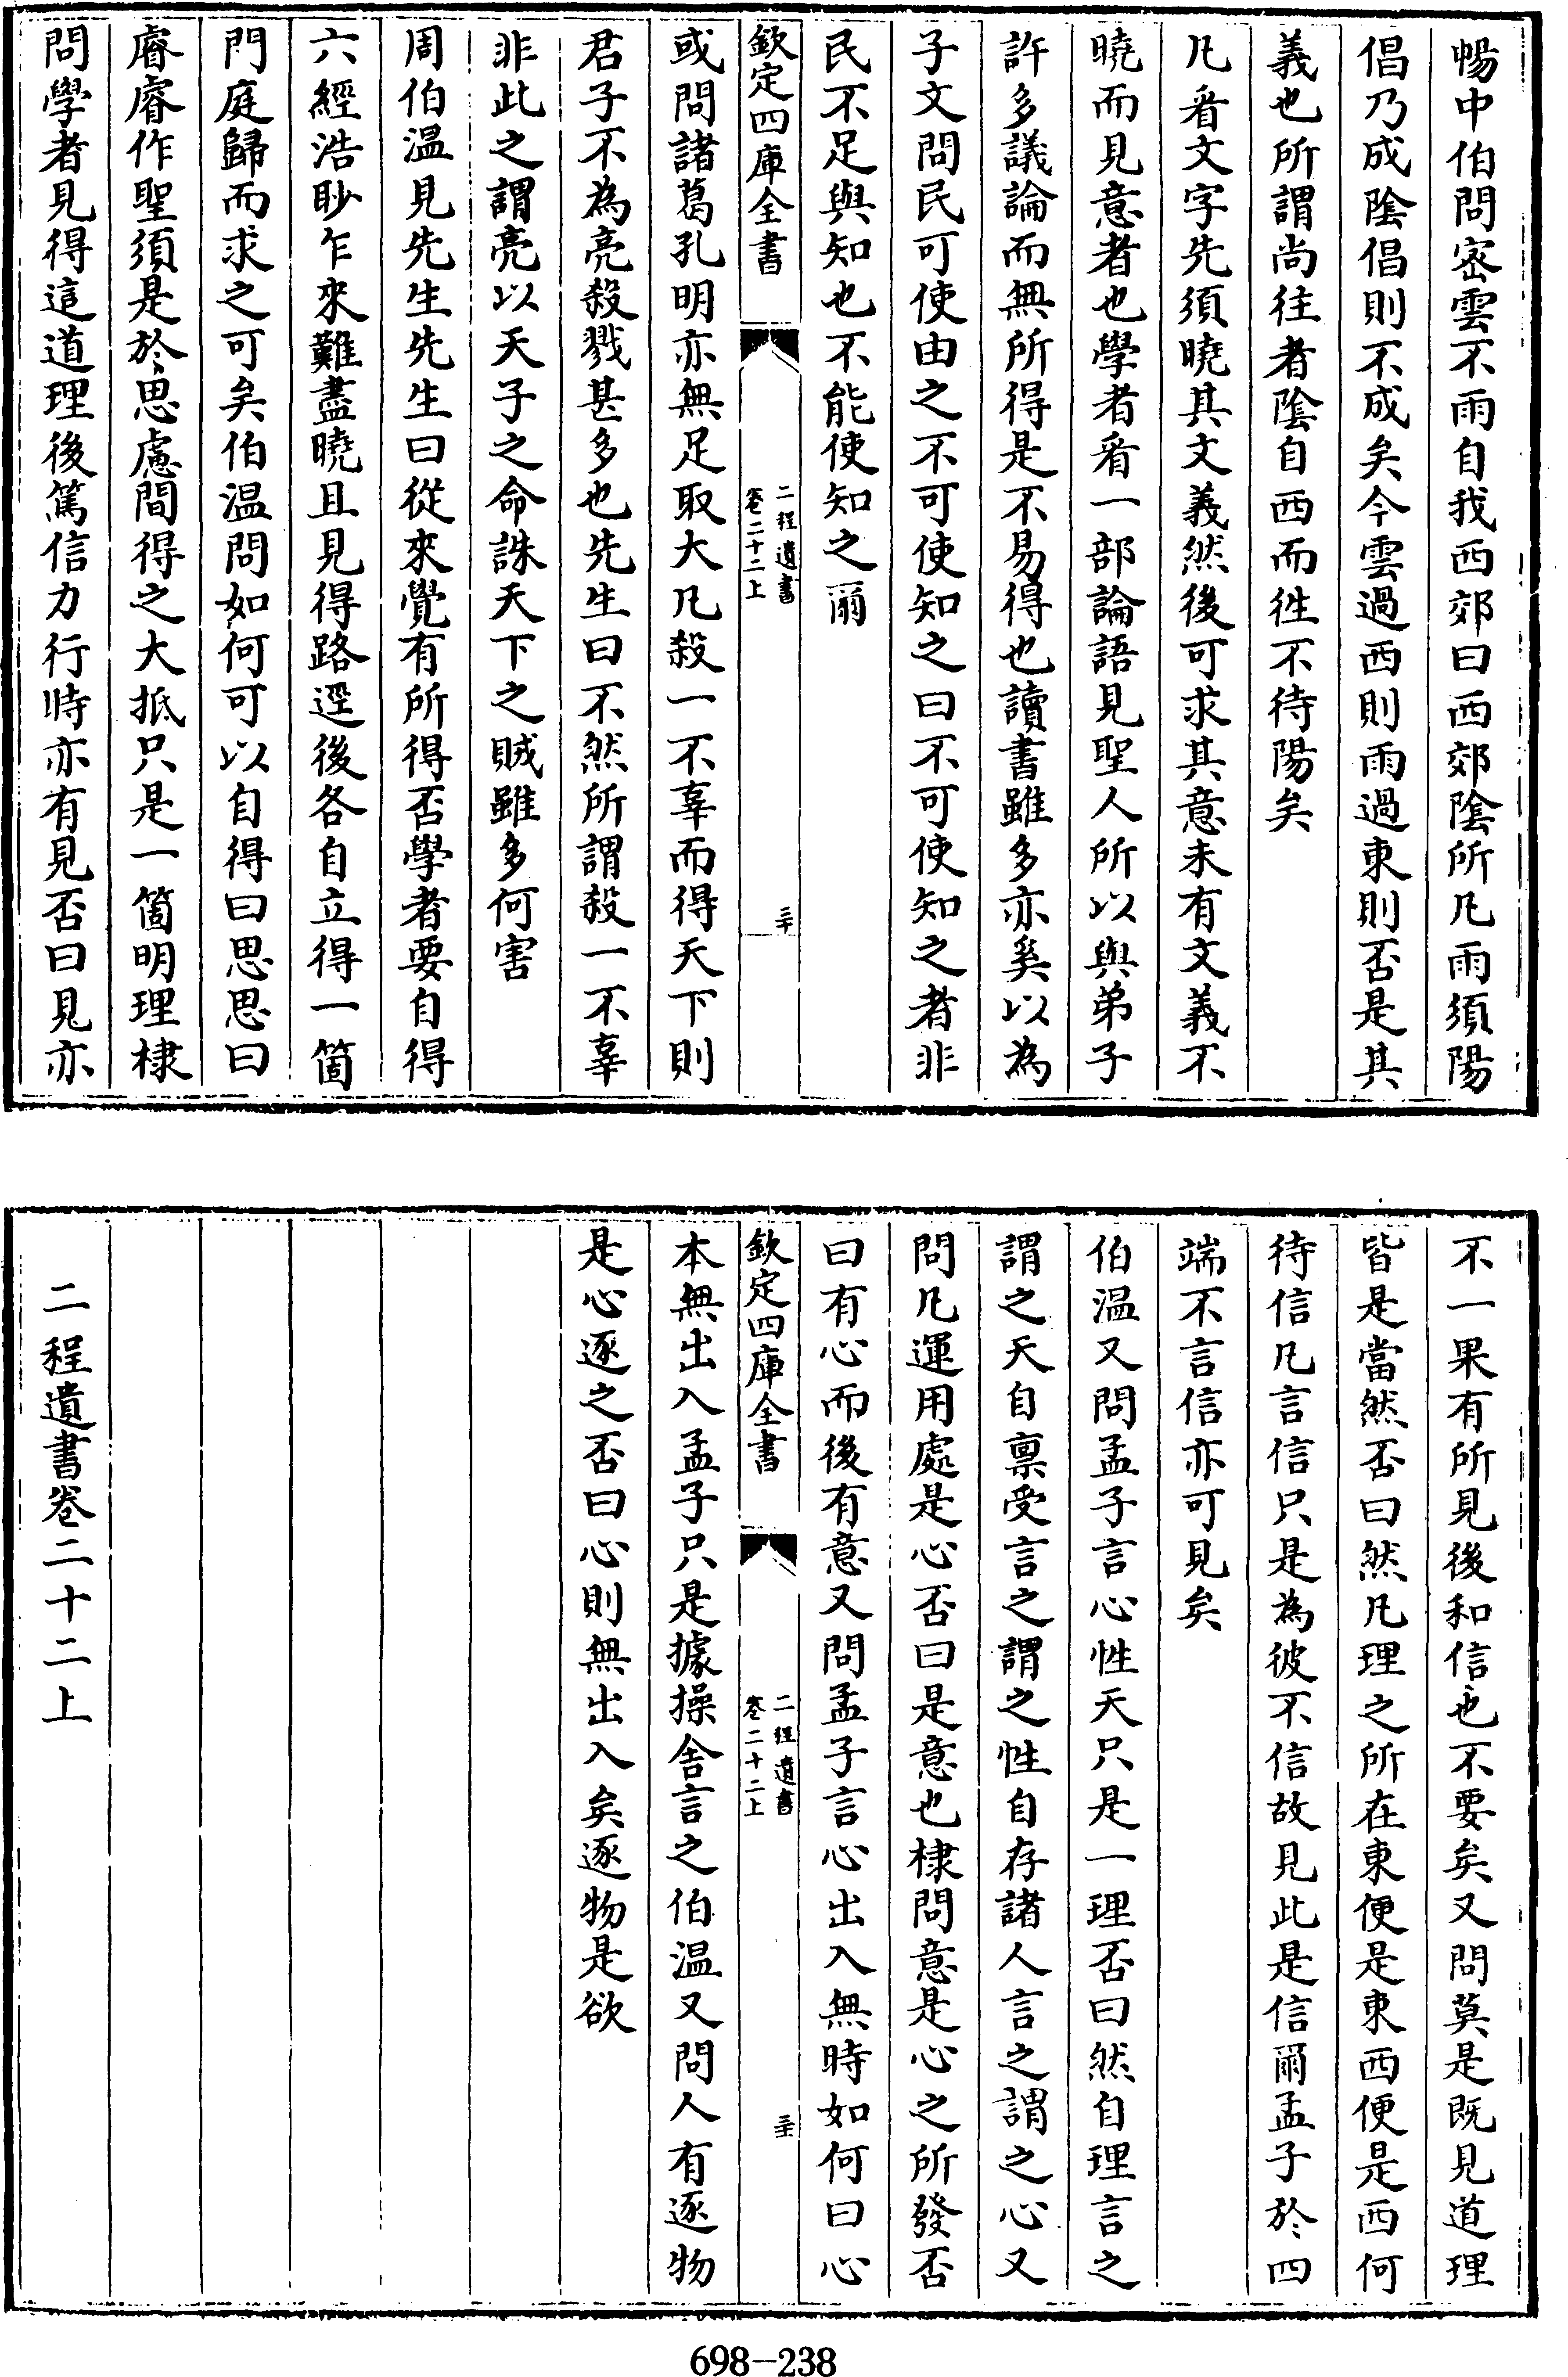 暢中伯問密雲不雨自我西郊曰西郊陰所凡雨須陽
倡乃成陰倡則不成矣今雲過西則雨過東則否是其
義也所謂尚往者陰自西而徃不待陽矣
凡㸔文字先須曉其文義然後可求其意未有文義不
曉而見意者也學者㸔一部論語見聖人所以與弟子
許多議論而無所得是不易得也讀書雖多亦奚以為
子文問民可使由之不可使知之曰不可使知之者非
民不足與知也不能使知之爾
欽定四庫全書
二程遺書
卷二十二上
三十
或問諸葛孔明亦無足取大凡殺一不辜而得天下則
君子不為亮殺戮甚多也先生曰不然所謂殺一不辜
非此之謂亮以天子之命誅天下之賊雖多何害
周伯溫見先生先生曰從來覺有所得否學者要自得
六經浩眇乍來難盡曉且見得路逕後各自立得一箇
門庭歸而求之可矣伯溫問如何可以自得曰思思曰
睿睿作聖須是於思慮間得之大抵只是一箇明理棣
問學者見得這道理後篤信力行時亦有見否曰見亦
不一果有所見後和信也不要矣又問莫是既見道理
皆是當然否曰然凡理之所在東便是東西便是西何
待信凡言信只是為彼不信故見此是信爾孟子於四
端不言信亦可見矣
伯溫又問孟子言心性天只是一理否曰然自理言之
謂之天自禀受言之謂之性自存諸人言之謂之心又
問凡運用處是心否曰是意也棣問意是心之所發否
曰有心而後有意又問孟子言心出入無時如何曰心
欽定四庫全書
二程遺書
卷二十二上
三十一
本無出入孟子只是據操舍言之伯溫又問人有逐物
是心逐之否曰心則無出入矣逐物是欲
二程遺書卷二十二上
698-238